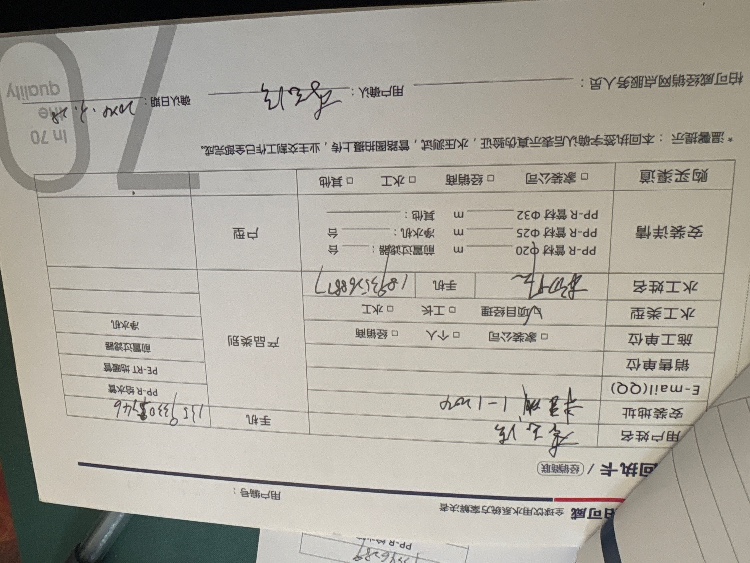 柏可威 全球饮用水系统方案解决者
用户编号：
回执卡 / 经销商联
用户姓名
手机 135
安装地址 1-1204
E-mail(QQ)
销售单位
施工单位 □ 家装公司 □ 个人 □ 经销商
水工类型 项目经理 □ 工长 □ 水工
水工姓名 手机 18935268877
产品类别
PP-R 给水管
PE-RT 地暖管
前置过滤器
净水机
安装详情
PP-R 管材 Φ20 m 前置过滤器： 台
PP-R 管材 Φ25 m 净水机： 台
PP-R 管材 Φ32 m 其他：
户型
购买渠道 □ 家装公司 □ 经销商 □ 水工 □ 其他
*温馨提示：本回执签字确认后表示真伪验证，水压测试，管路图拍摄上传，业主交割工作已全部完成。
柏可威经销网点服务人员：
用户确认：
确认日期：
In 70
life
quality
70
PP-R 给水